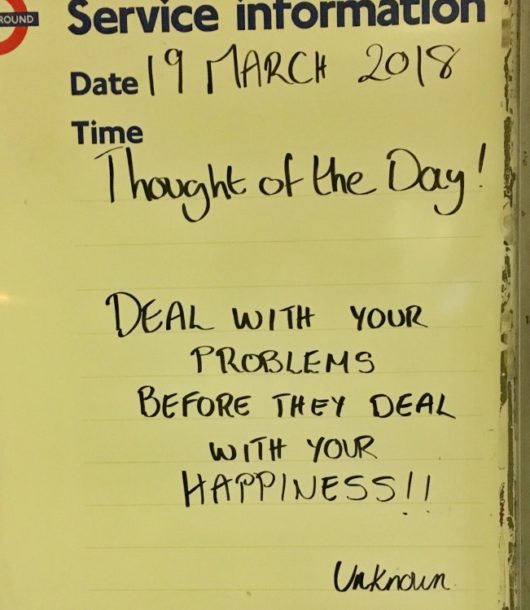 ROUND
Service information
Date 19 MARCH 2018
Time
Thought of the Day!
DEAL WITH YOUR
PROBLEMS
BEFORE THEY DEAL
WITH YOUR
HAPPINESS!!
Unknown